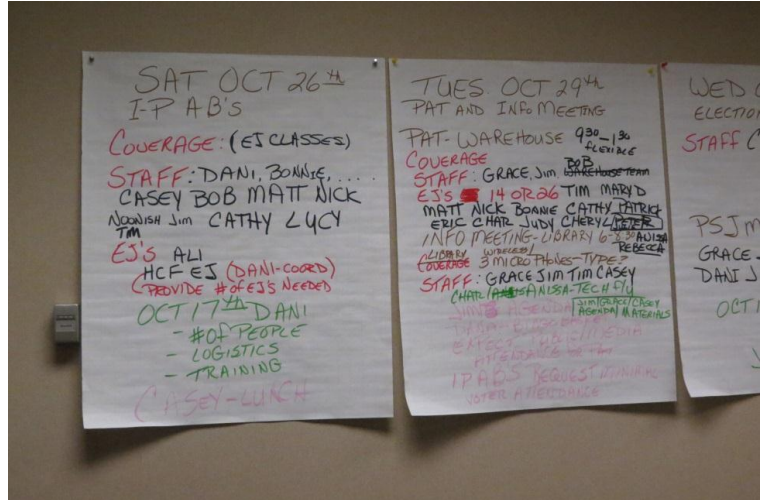 SAT OCT 26th
I-P AB'S
COVERAGE: (EJ CLASSES)
STAFF: DANI, BONNIE, .....
CASEY BOB MATT NICK
NOONISH JIM CATHY LUCY
TIM
EJ'S ALI
HCF EJ (DANI-COORD)
(PROVIDE # OF EJ'S NEEDED
OCT 17th DANI
- # OF PEOPLE
- LOGISTICS
- TRAINING
CASEY-LUNCH
TUES. OCT 29th
PAT AND INFO MEETING
PAT-WAREHOUSE 930-130
FLEXIBLE
COVERAGE
STAFF: GRACE, JIM, BOB WAREHOUSE TEAM
EJ'S 14 OR 26 TIM MARY D
MATT NICK BONNIE CATHY PATRICK
ERIC CHAR JUDY CHERYL PETER
INFO MEETING-LIBRARY 6-8:30 ANISSA
REBECCA
LIBRARY WIRELESS/
COVERAGE 3 MICROPHONES-TYPE?
STAFF: GRACE JIM TIM CASEY
CHAR/ANISSA-TECH F/U
AGENDA JIM/GRACE/CASEY
AGENDA/MATERIALS
EXPECT MEDIA
ATTENDANCE
IPABS REQUEST
VOTER ATTENDANCE
WED
ELECTION
STAFF
PSJ
GRACE
DANI J
OCT